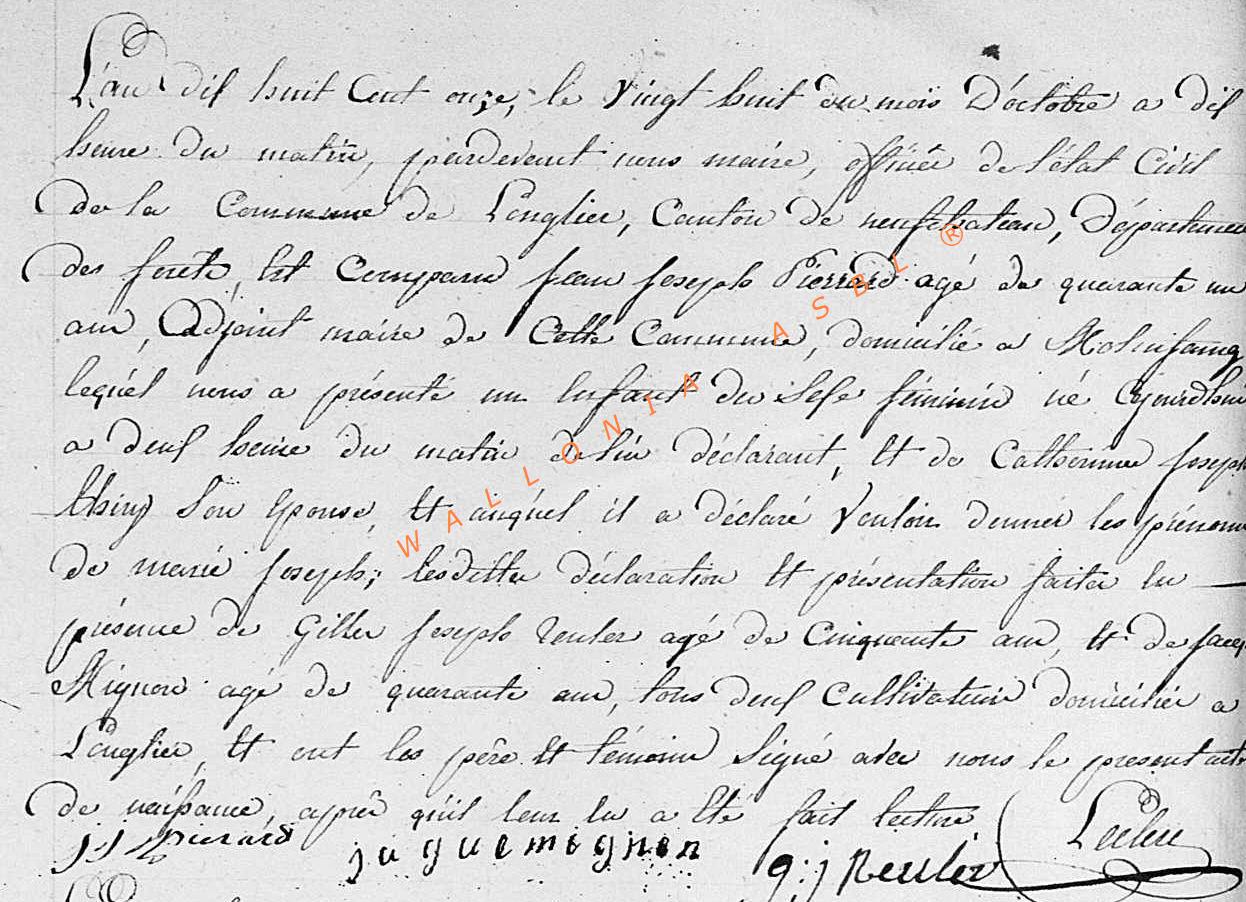 L'an dix huit Cent onze, le vingt huit du mois D'octobre a dix
heure du matin, pardevant nous maire, officier de l'état Civil
de la Commune de Longlier, Canton de neufchateau, Département
des forets, Est Comparu jean joseph Pierrard agé de quarante un
ans, Adjoint maire de Cette Commune, domicilié a Molinfaing
lequel nous a présenté un Enfant du Sexe féminin né Cejourdhui
a deux heure du matin de lui déclarant, Et de Catherinne joseph
thiry Son Epouse, Et auquel il a déclaré Vouloir donner les prénoms
de marie joseph; lesdittes déclaration Et présentation faites En
présence de Gilles joseph Reuler agé de Cinquante ans, Et de jacq
Mignon agé de quarante ans, tous deux Cultivateurs domiciliés a
Longlier, Et ont les père Et témoins Signé avec nous le present acte
de naissance, après qu'il leur En a Eté fait lecture
j j pierard juguemignon g: j Reuler Leclere
WALLONIA ASBL ®